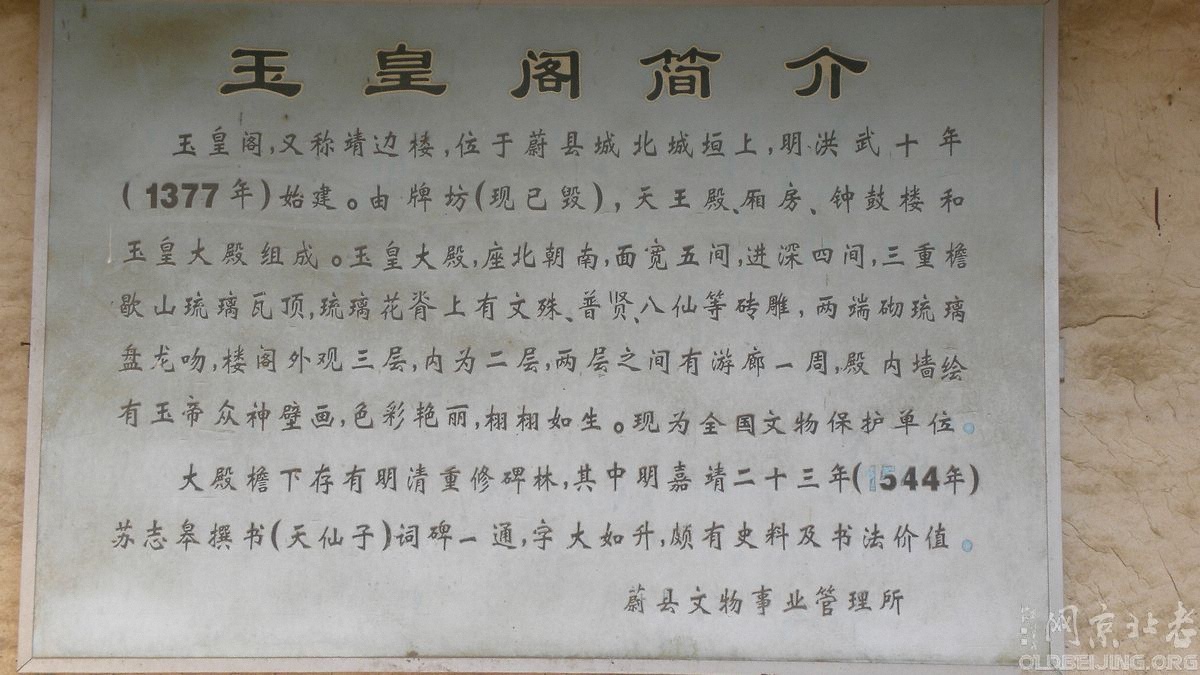 玉皇阁简介
玉皇阁,又称靖边楼,位于蔚县城北城垣上,明洪武十年
(1377年)始建。由牌坊(现已毁),天王殿、厢房、钟鼓楼和
玉皇大殿组成。玉皇大殿,座北朝南,面宽五间,进深四间,三重檐
歇山琉璃瓦顶,琉璃花脊上有文殊、普贤、八仙等砖雕,两端砌琉璃
盘龙吻,楼阁外观三层,内为二层,两层之间有游廊一周,殿内墙绘
有玉帝众神壁画,色彩艳丽,栩栩如生。现为全国文物保护单位。
大殿檐下存有明清重修碑林,其中明嘉靖二十三年(1544年)
苏志皋撰书(天仙子)词碑一通,字大如升,颇有史料及书法价值。
蔚县文物事业管理所
老北京网
OLDBEIJING.ORG